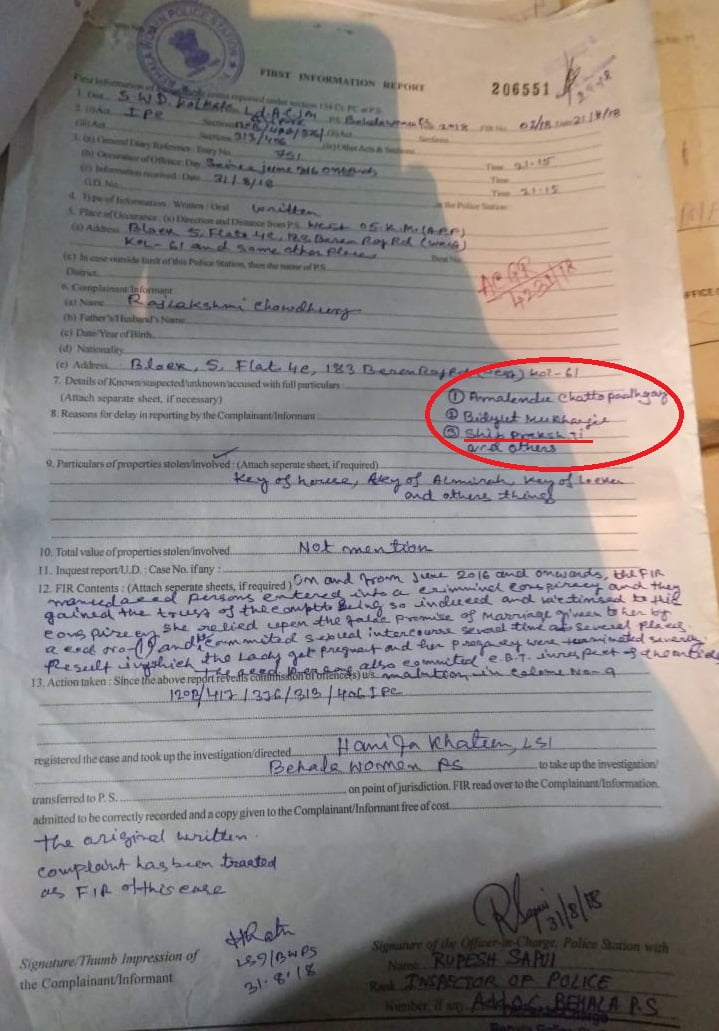 BEHALA WOMEN POLICE STATION
FIRST INFORMATION REPORT
206551
First Information of
1. Dist. S.W.D. Kolkata Ld. A.C.J.M P.S. 2018 FIR No. 02/18 Date 31/8/18
2. (i) Act IPC Sections (ii) Act
(iii) Act Sections 313/406 (iv) Other Acts & Sections
3. (a) General Diary Reference : Entry No. 751 Time 21.15
(b) Occurrence of Offence : Day Since June 2016 onwards Time
(c) Information received : Date 31/8/18 Time 21.15
G.D. No. at the Police Station
4. Type of Information : Written / Oral written
5. Place of Occurrence : (a) Direction and Distance from P.S. West 05 K.M. (APP)
(b) Address Block S, Flat 4E, Beren Roy Rd (West)
KOL-61 and some other places Beat No.
(c) In case outside limit of this Police Station, then the name of P.S.
District
ACGR
4231/18
6. Complainant/Informant
(a) Name Rajlakshmi Chowdhury
(b) Father's/Husband's Name
(c) Date/Year of Birth
(d) Nationality
(e) Address Block, S, Flat 4E, 183 Beren Roy Rd (West) KOL-61
7. Details of Known/suspected/unknown/accused with full particulars
(Attach separate sheet, if necessary)
① Amalendu Chattopadhyay
② Bidyut Mukharjie
③ Shib Praksh Ji
and others
8. Reasons for delay in reporting by the Complainant/Informant
9. Particulars of properties stolen/involved : (Attach seperate sheet, if required)
Key of house, key of Almirah, key of Locker
and others things
10. Total value of properties stolen/involved Not mention
11. Inquest report/U.D. : Case No. if any :
12. FIR Contents : (Attach seperate sheets, if required) On and from June 2016 and onwards, the FIR
named accd persons entered into a criminal conspiracy and they
gained the trust of the compt being so induced and victimsed to the
conspiracy she relied upon the false promise of Marriage given to her by
accd no-(1) and commited sexual intercourse several time at several places.
Result in which the Lady get pregnant and her pregnancy were terminated severaly
accd persons also commited C.B.T. in respect of the articles
13. Action taken : Since the above report reveals commission of offence(s) u/s. mention in Colome No-9
120B/417/376/313/406 IPC
registered the case and took up the investigation/directed Hanifa Khatun, LSI
Behala Women PS to take up the investigation/
transferred to P. S. on point of jurisdiction. FIR read over to the Complainant/Information.
admitted to be correctly recorded and a copy given to the Complainant/Informant free of cost
The original written
complaint has been treated
as FIR of this case
31/8/18
LSI/BWPS
31.8.18
Signature/Thumb Impression of
the Complainant/Informant
Signature of the Officer-in-Charge, Police Station with
Name RUPESH SAPUI
Rank INSPECTOR OF POLICE
Number, if any Addl O.C. BEHALA P.S